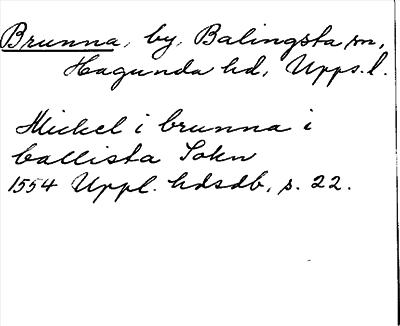 Brunna, by, Balingsta sn,
Hagunda hd, Upps. l.
Mickel i brunna i
ballista Sokn
1554 Uppl. hdsdb, s. 22.